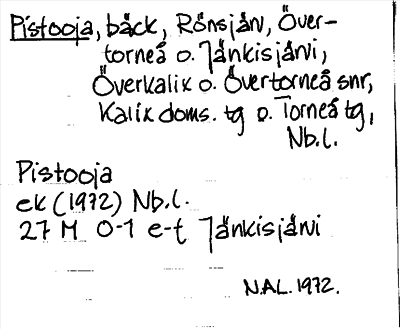 Pistooja, bäck, Rönsjärv, Över-
torneå o. Jänkisjärvi,
Överkalix o. Övertorneå snr,
Kalix doms. tg o. Torneå tg,
Nb.l.
Pistooja
ek (1972) Nb.l.
27 M 0-1 e-f Jänkisjärvi
N.AL. 1972.